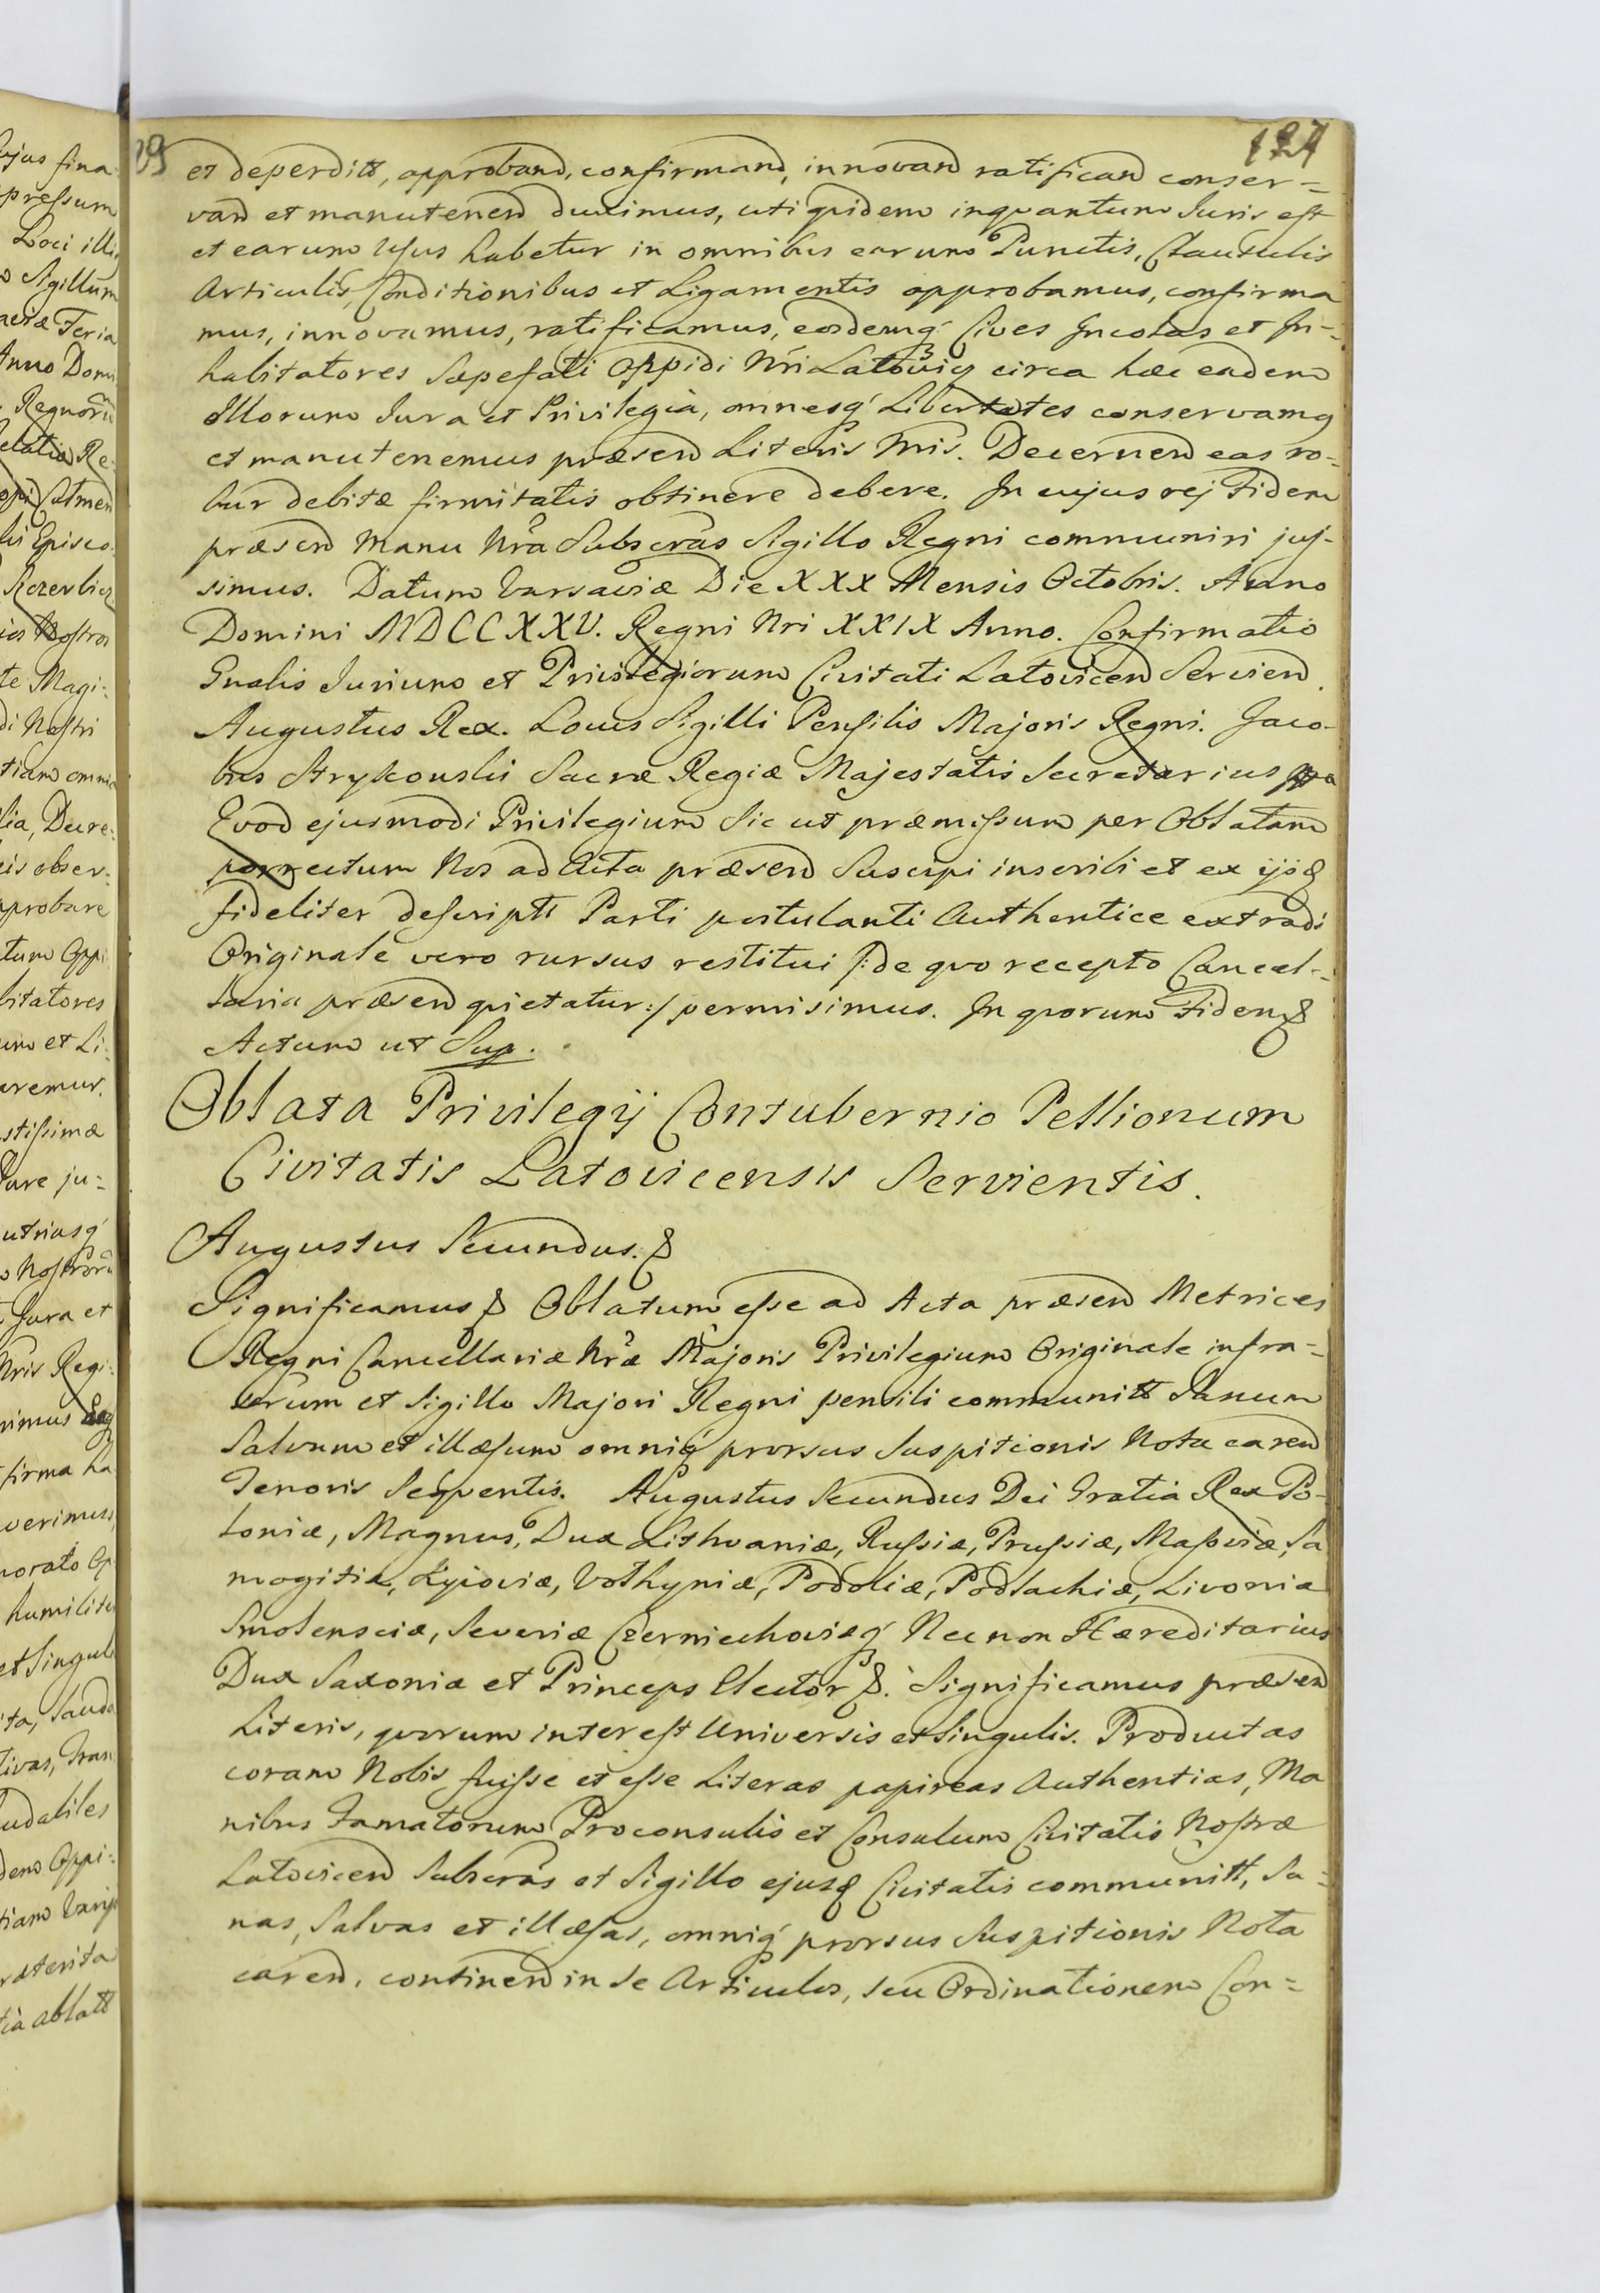 124
et deperditt, approband, confirmand, innovand ratificand conser=
vand et manutenend duximus, uti quidem inquantum Juris est
et earum Usus habetur in omnibus earum Punctis, Clausulis
Articulis, Conditionibus et Ligamentis approbamus, confirma
mus, innovamus, ratificamus, eosdemq́ Cives Incolas et In=
habitatores Sæpefati Oppidi Nri Latowicz circa hæc eadem
Illorum Jura et Privilegia, omnesq́ Libertates conservamq
et manutenemus præsend Literis Nris. Decernend eas ro=
bur debitæ firmitatis obtinere debere. In cujus rej Fidem
præsend Manu Nra Subscras Sigillo Regni communiri jus-
simus. Datum Varsaviæ Die XXX Mensis Octobris. Anno
Domini MDCCXXV. Regni Nri XXIX Anno. Confirmatio
Gnalis Jurium et Privilegiorum Civitati Latovicen Servien.
Augustus Rex. Locus Sigilli Pensilis Majoris Regni. Jaco-
bus Strykouski Sacræ Regiæ Majestatis Secretarius
Quod ejusmodi Privilegium Sic ut præmissum per Oblatam
porrectum Nos ad Acta præsend Suscipi inscribi et ex ijsd
fideliter descriptt Parti postulanti Authentice extradi
Originale vero rursus restitui /:de quo recepto Cancel=
laria præsend quietatur:/ permisimus. In quorum Fidem &
Actum ut Sup.
Oblata Privilegij Contubernio Pellionum
Civitatis Latovicensis Servientis.
Augustus Secundus. &
Significamus & Oblatum esse ad Acta præsend Metrices
Regni Cancellariæ Nræ Majoris Privilegium Originale infra=
scrum et Sigillo Majori Regni pensili communitt Sanum
Salvum et illæsum omniq́ prorsus Suspitionis Nota carend
Tenoris Sequentis. Augustus Secundus Dei Gratia Rex Po-
loniæ, Magnus Dux Lithvaniæ, Russiæ, Prussiæ, Masoviæ, Sa
mogitiæ, Kyioviæ, Volhyniæ, Podoliæ, Podlachiæ, Livoniæ
Smolensciæ, Severiæ Czerniechoviæq́ Necnon Hæreditarius
Dux Saxoniæ et Princeps Elector &. Significamus præsend
Literis, quorum interest Universis et Singulis. Productas
coram Nobis fuisse et esse Literas papireas Authenticas, Ma
nibus Famatorum Proconsulis et Consulum Civitatis Nostræ
Latovicend Subscras et Sigillo ejusd Civitatis communitt, Sa=
nas, Salvas et illæsas, omniq́ prorsus Suspitionis Nota
carend, continend in se Articulos, seu Ordinationem Con=